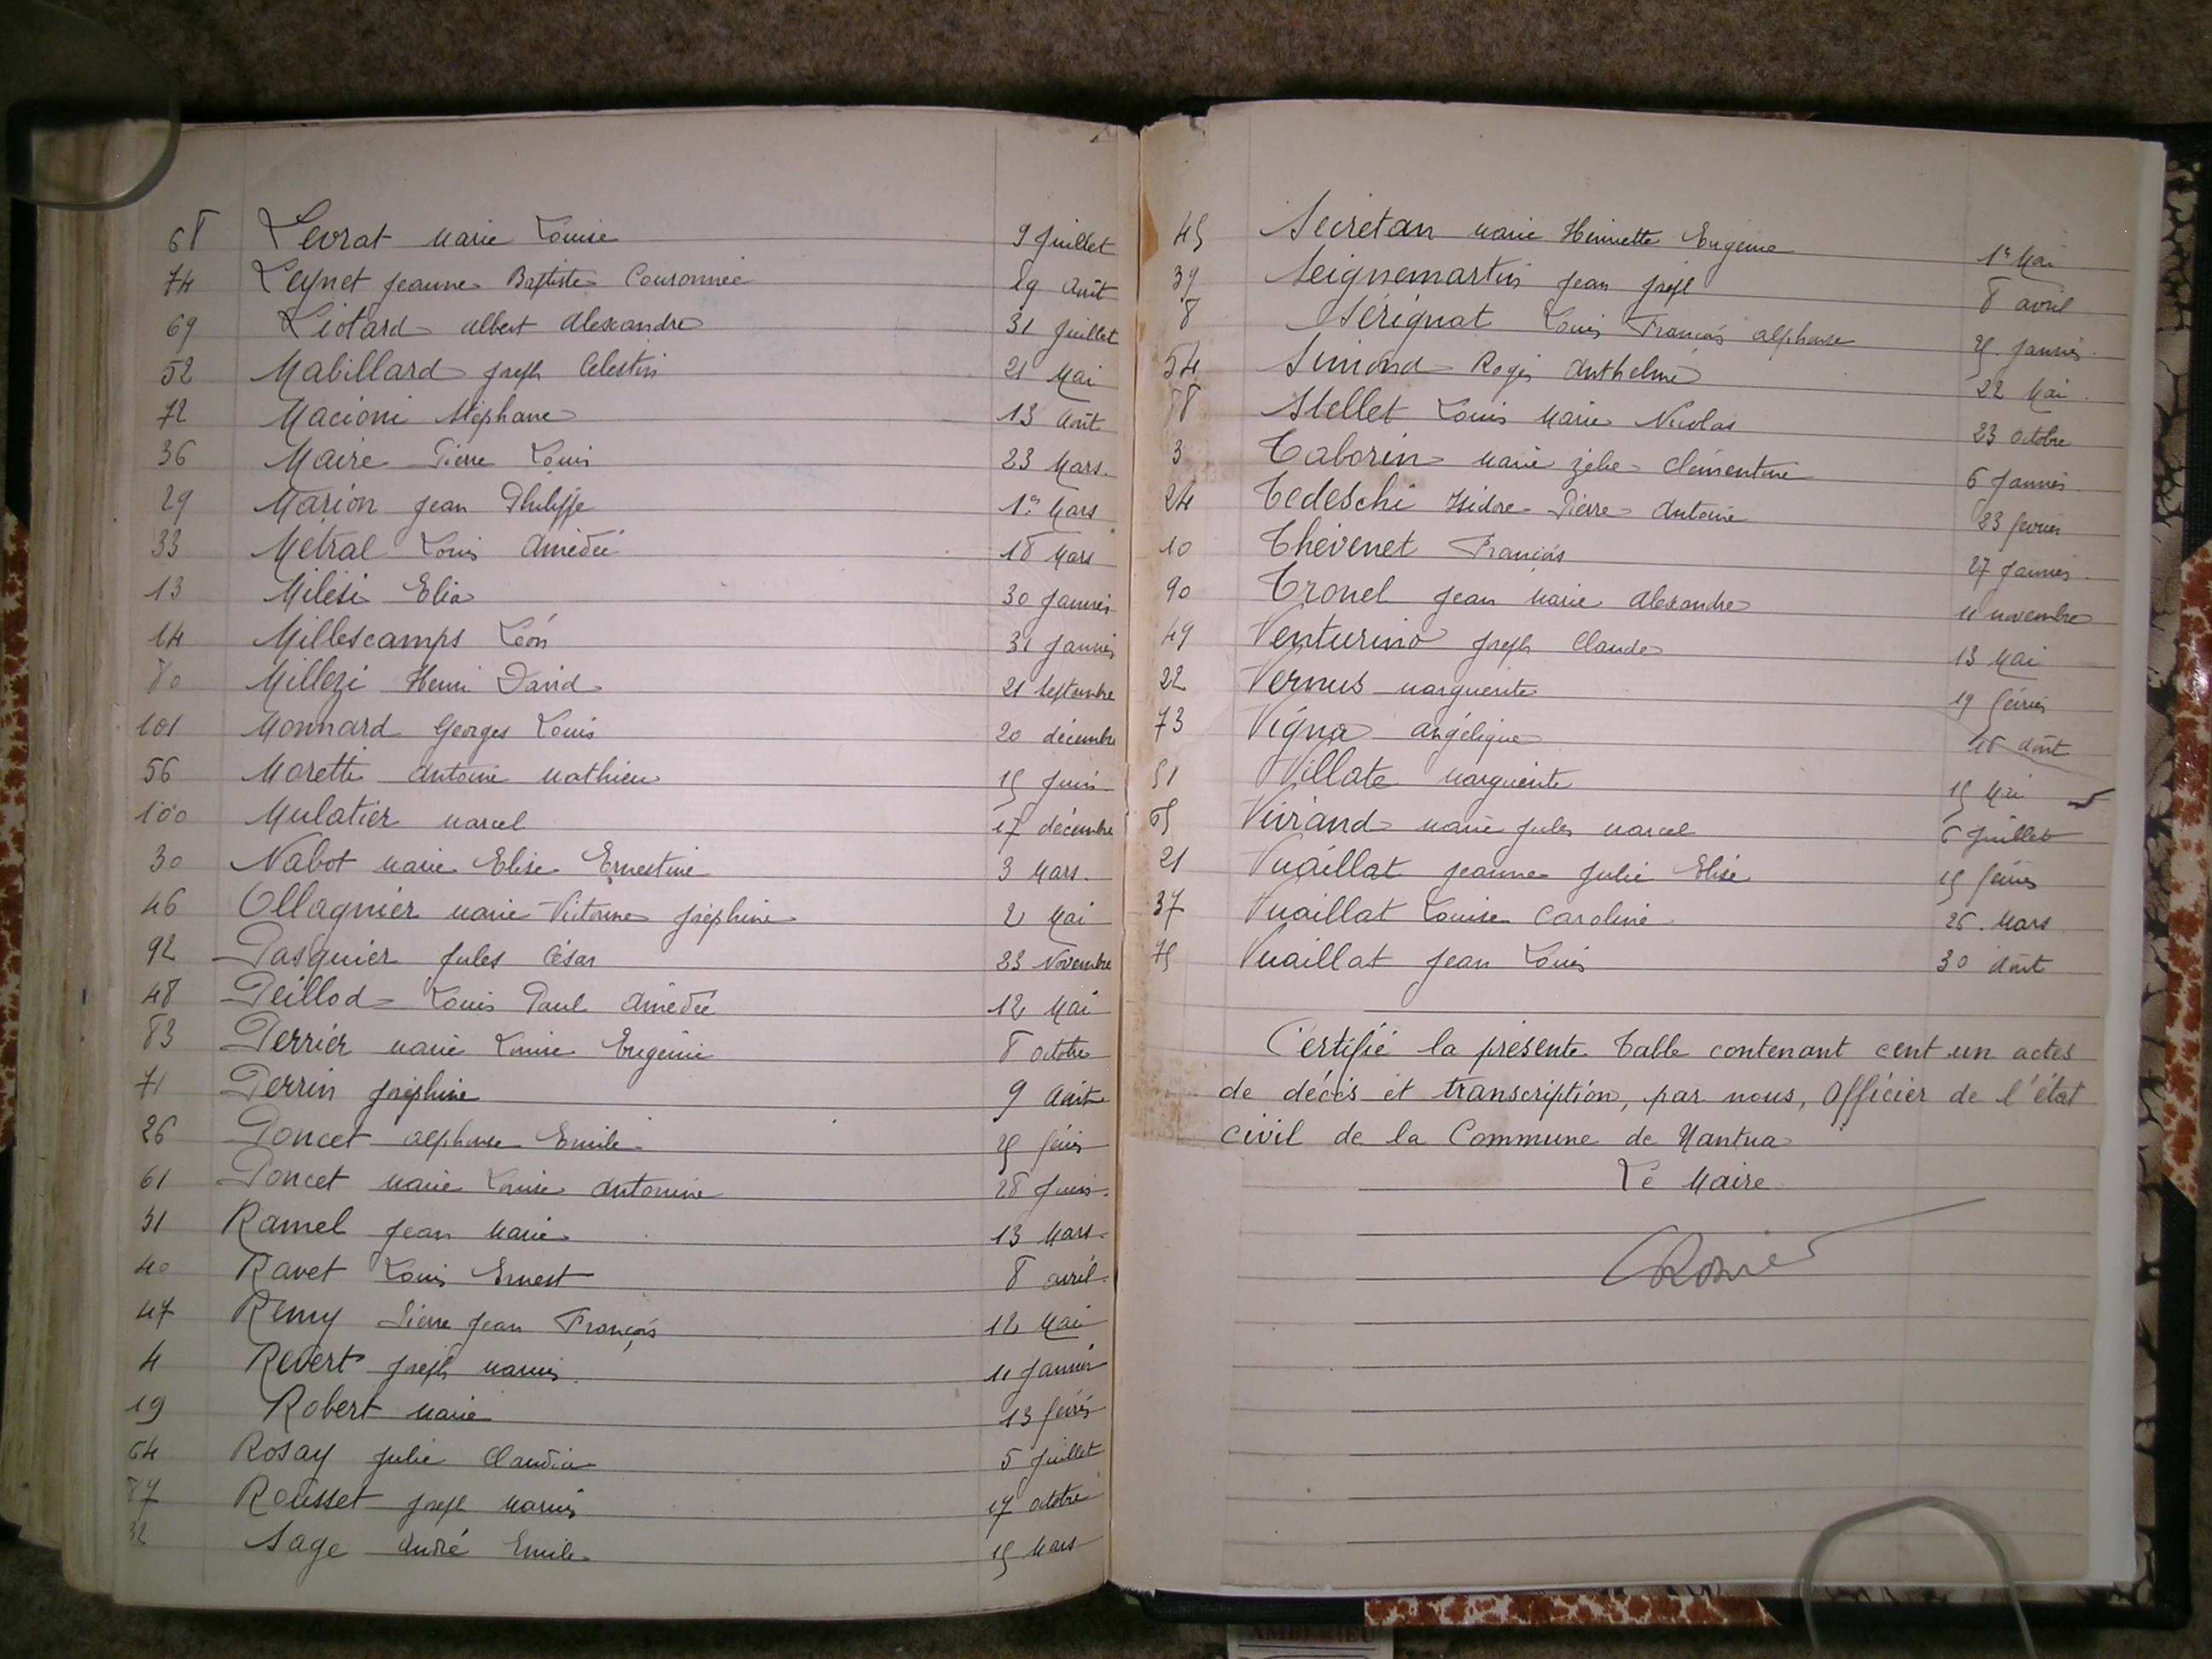 68 Levrat Marie Louise 9 Juillet
74 Leynet Jeanne Baptiste Couronnée 19 Août
69 Liotard Albert Alexandre 31 Juillet
52 Mabillard Joseph Célestin 21 Mai
72 Macioni Stéphane 13 Août
36 Maire Pierre Louis 23 Mars.
29 Marion Jean Philippe 1er Mars
33 Métral Louis Amédée 18 Mars
13 Milesi Elia 30 Janvier
14 Millescamps Léon 31 Janvier
80 Millezi Henri David 21 Septembre
101 Monnard Georges Louis 20 décembre
56 Moretti Antoine Mathieu 15 Juin
100 Mulatier Marcel 17 décembre
30 Nabot Marie Elise Ernestine 3 Mars.
46 Ollagnier Marie Victorine Joséphine 2 Mai
92 Pasquier Jules César 23 Novembre
48 Peillod Louis Paul Amédée 12 Mai
83 Perrier Marie Louise Eugénie 8 Octobre
71 Perrin Joséphine 9 Août
26 Poncet Alphonse Emile 25 février
61 Poncet Marie Louise Antonine 28 Juin.
31 Ramel Jean Marie 13 Mars.
40 Ravet Louis Ernest 8 avril.
47 Remy Pierre Jean François 12 Mai
4 Revert Joseph Marius 11 Janvier
19 Robert Marie 13 février
64 Rosay Julie Claudia 5 Juillet
87 Rousset Joseph Marius 17 Octobre
32 Sage André Emile 15 Mars
45 Secretan Marie Henriette Eugénie 1er Mai
39 Seignemartin Jean Joseph 8 avril
8 Sérignat Louis François Alphonse 25 Janvier
54 Simond Régis Anthelme 22 Mai.
88 Stellet Louis Marie Nicolas 23 Octobre
3 Taborin Marie Zélie Clémentine 6 Janvier.
24 Tedeschi Isidore Pierre Antoine 23 février
10 Thévenet François 27 Janvier.
90 Tronel Jean Marie Alexandre 11 novembre
49 Venturino Joseph Claude 13 Mai
22 Vernus Marguerite 19 février
73 Vigna Angélique 16 Août
51 Villate Marguerite 15 Mai
65 Vivrand Marie Jules Marcel 6 Juillet
21 Vuaillat Jeanne Julie Elise 15 février
37 Vuaillat Louise Caroline 26. Mars
75 Vuaillat Jean Louis 30 Août
Certifié la présente Table contenant cent un actes
de décès et transcription, par nous, Officier de l'état
civil de la Commune de Nantua
Le Maire